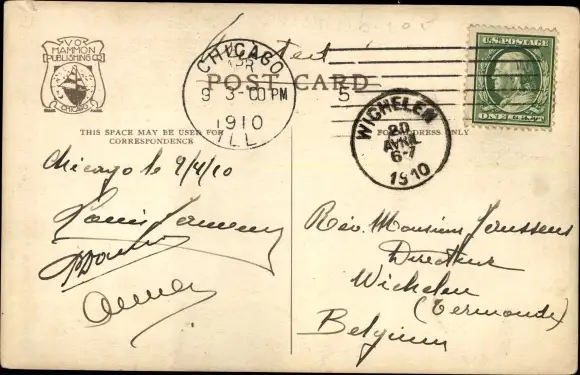 V.O.
HAMMON
PUBLISHING CO
CHICAGO
TRADE MARK
CHICAGO
APR
9 3-00 PM
1910
ILL.
5
U.S. POSTAGE
POST CARD
WICHELEN
20
AVRIL
6-7
1910
THIS SPACE MAY BE USED FOR
CORRESPONDENCE
FOR ADDRESS ONLY
Chicago le 9/4/10
Louis
Rév. Monsieur Janssens
Directeur
Wichelen
(Termonde)
Belgium